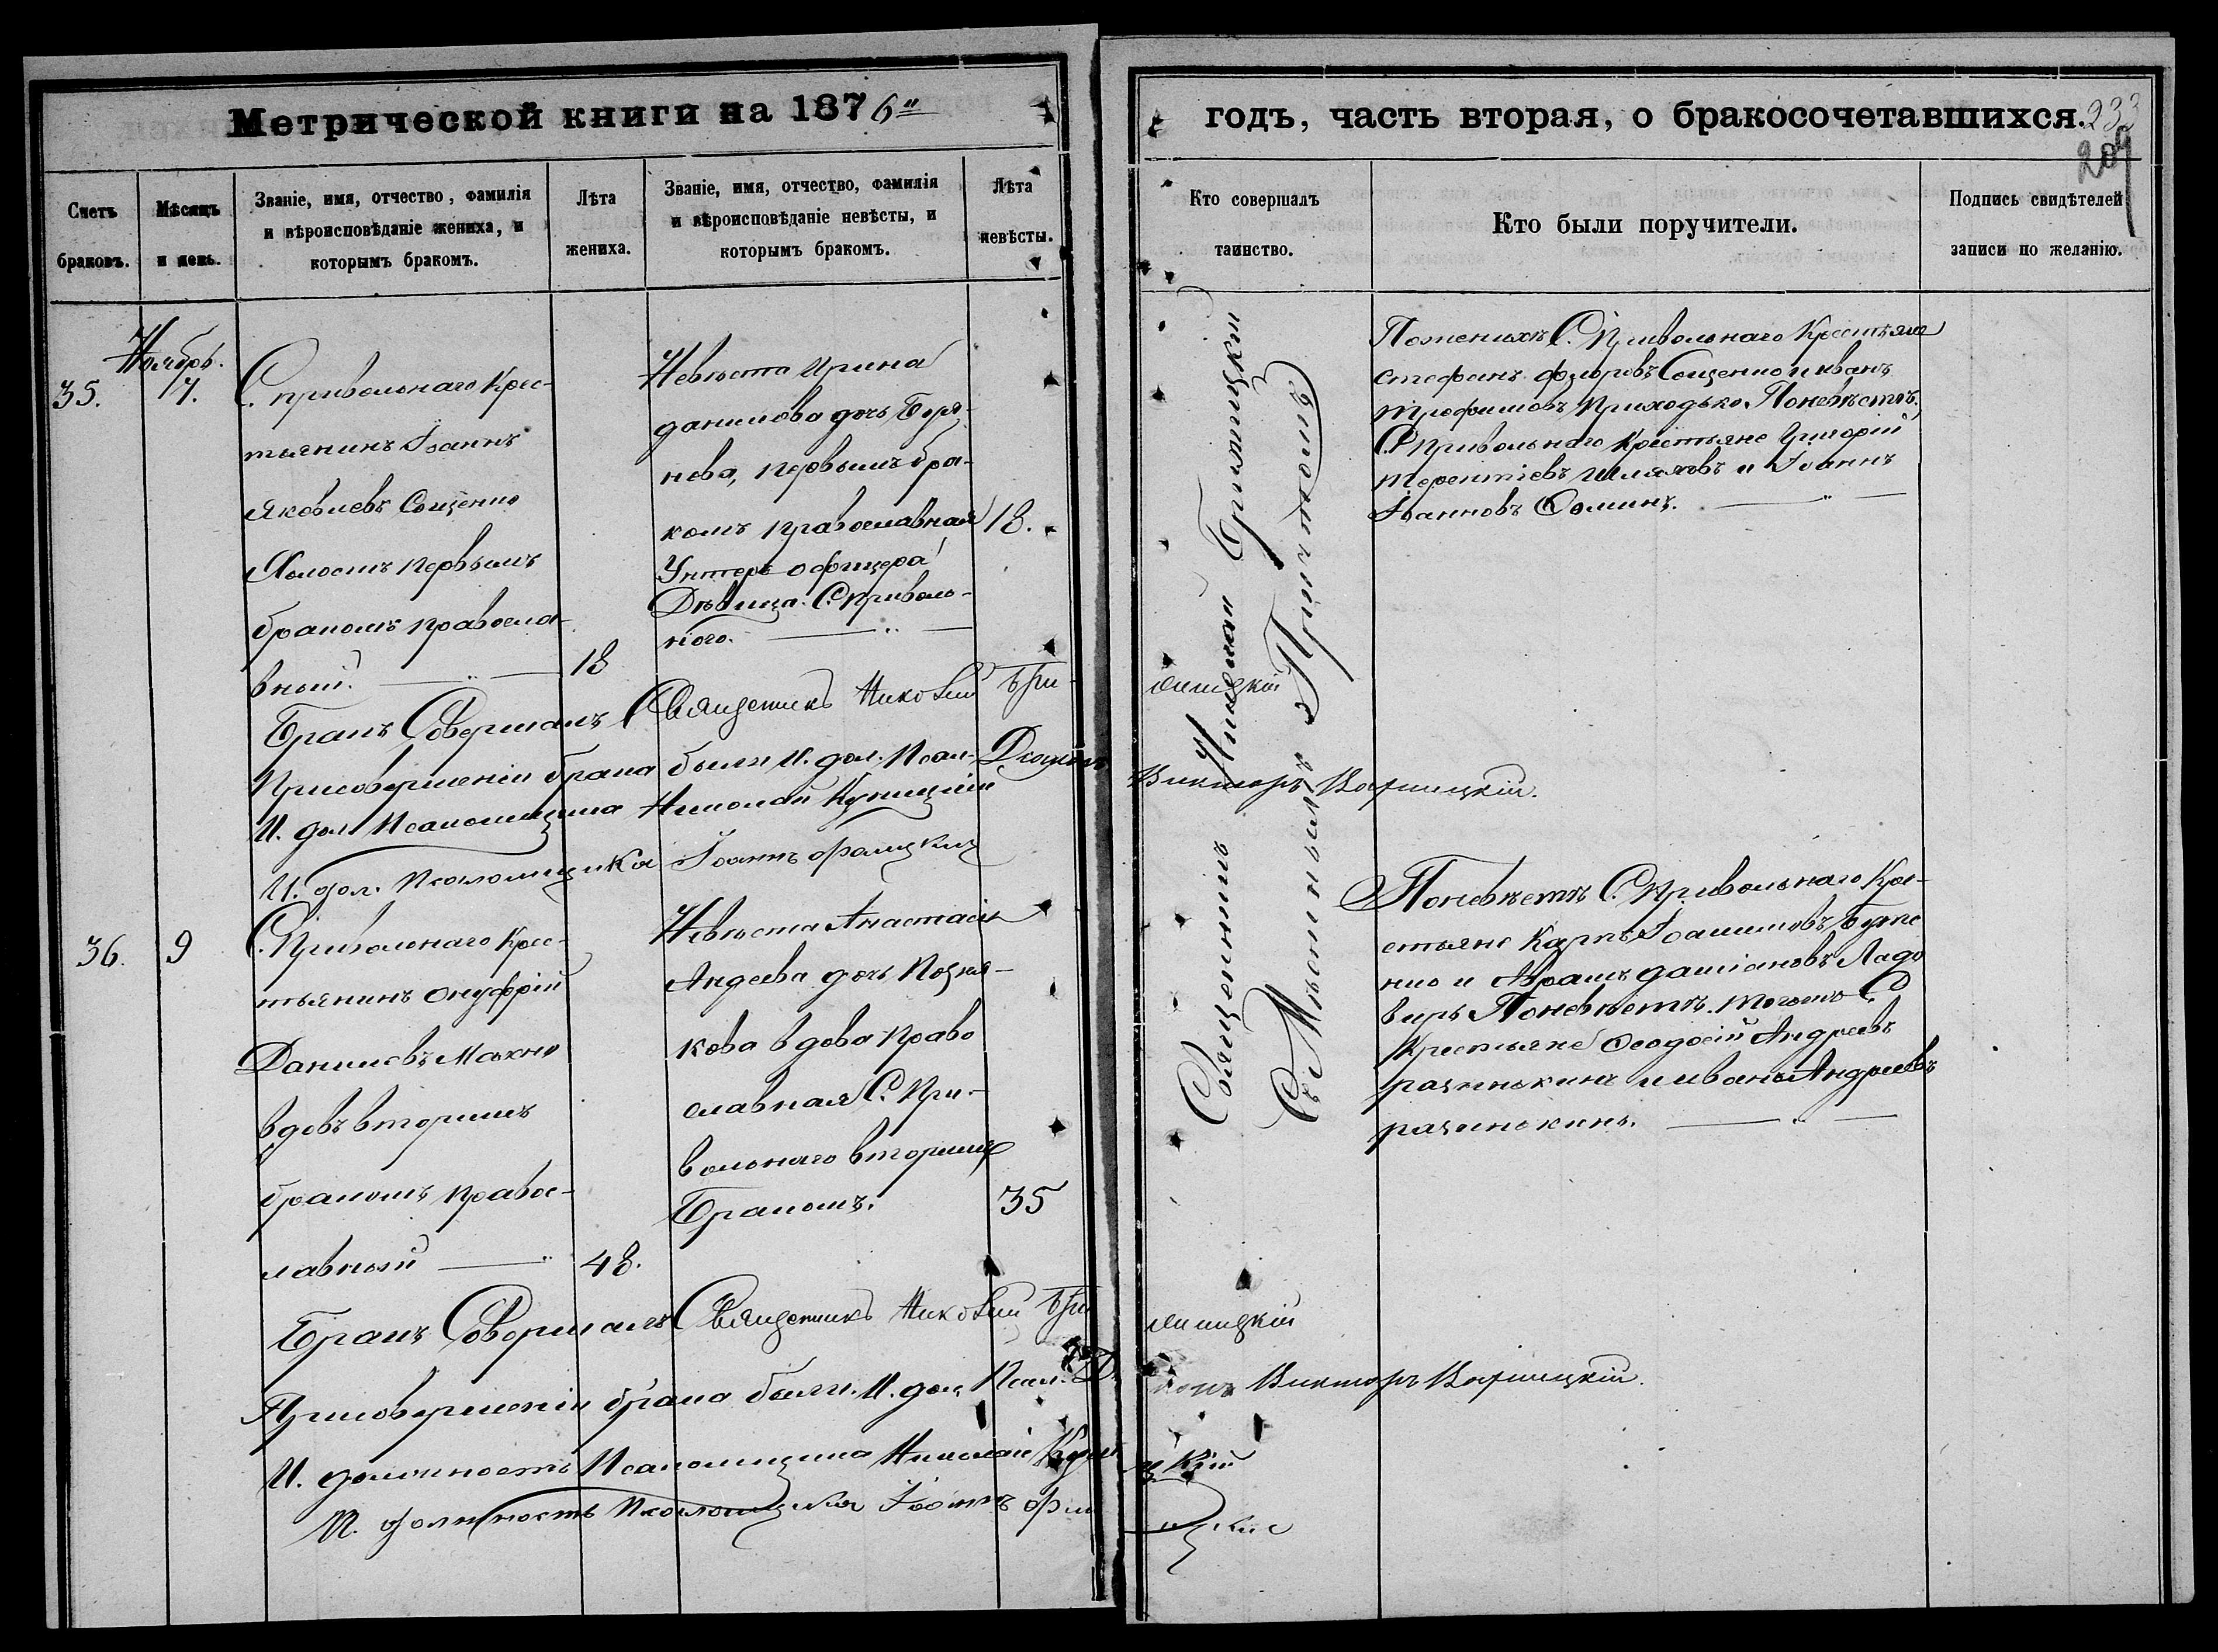 Метрической книги на 1876 "
годъ, часть вторая, о бракосочетавшихся.
233
209
Счетъ браковъ.
Мѣсяцъ и день.
Званіе, имя, отчество, фамилія
и вѣроисповѣданіе жениха, и
которымъ бракомъ.
Лѣта
жениха.
Званіе, имя, отчество, фамилія
и вѣроисповѣданіе невѣсты, и
которымъ бракомъ.
Лѣта
невѣсты.
Кто совершалъ
таинство.
Кто были поручители.
Подпись свидѣтелей
записи по желанію.
Ноябрь.
35.
7.
С. привольнаго Крес-
тьянинъ Іоаннъ
Яковлевъ Сощенко
Холостъ первымъ
бракомъ правосла-
вный.
18
Невѣста Ирина
данилова дочь
нева, первымъ бра-
комъ православная
18.
Унтеръ офицера
Дѣвица. С. Приволь-
наго.
Священникъ Николай
Съ Мѣстнымъ Причтомъ
Поженихѣ С. Привольнаго Крестьяне
стефанъ федоровъ Сощенко и иванъ
трофимовъ Приходько. Поневѣстѣ.
С. Привольнаго Крестьяне Григорій
терентіевъ и Іоаннъ
Іоанновъ Соминъ.
Бракъ Совершалъ Священникъ Николай
Присовершеніи брака были И. дол. Псал. Діаконъ
Викторъ
И. дол. Псаломщика Николай
И. дол. Псаломщика Іоаннъ
36.
9
С. Привольнаго Крес-
тьянинъ Онуфрій
Даниловъ Махно
вдовъ вторымъ
бракомъ правос-
лавный
48.
Невѣста Анастасія
Андеева дочь
кова вдова право
славная С. При-
вольнаго вторымъ
Бракомъ.
35
Поневѣстѣ С. Привольнаго Кре-
стьяне Карпъ
нко и Аврамъ
Поневѣстѣ. тогожъ С
Крестьяне Феодосій Андреевъ
и иванъ Андреевъ
Бракъ Совершалъ Священникъ Николай
Присовершеніи брака были. И. дол. Псал.
Викторъ
И. должность Псаломщика Николай
И. должность Псаломщика Іоаннъ